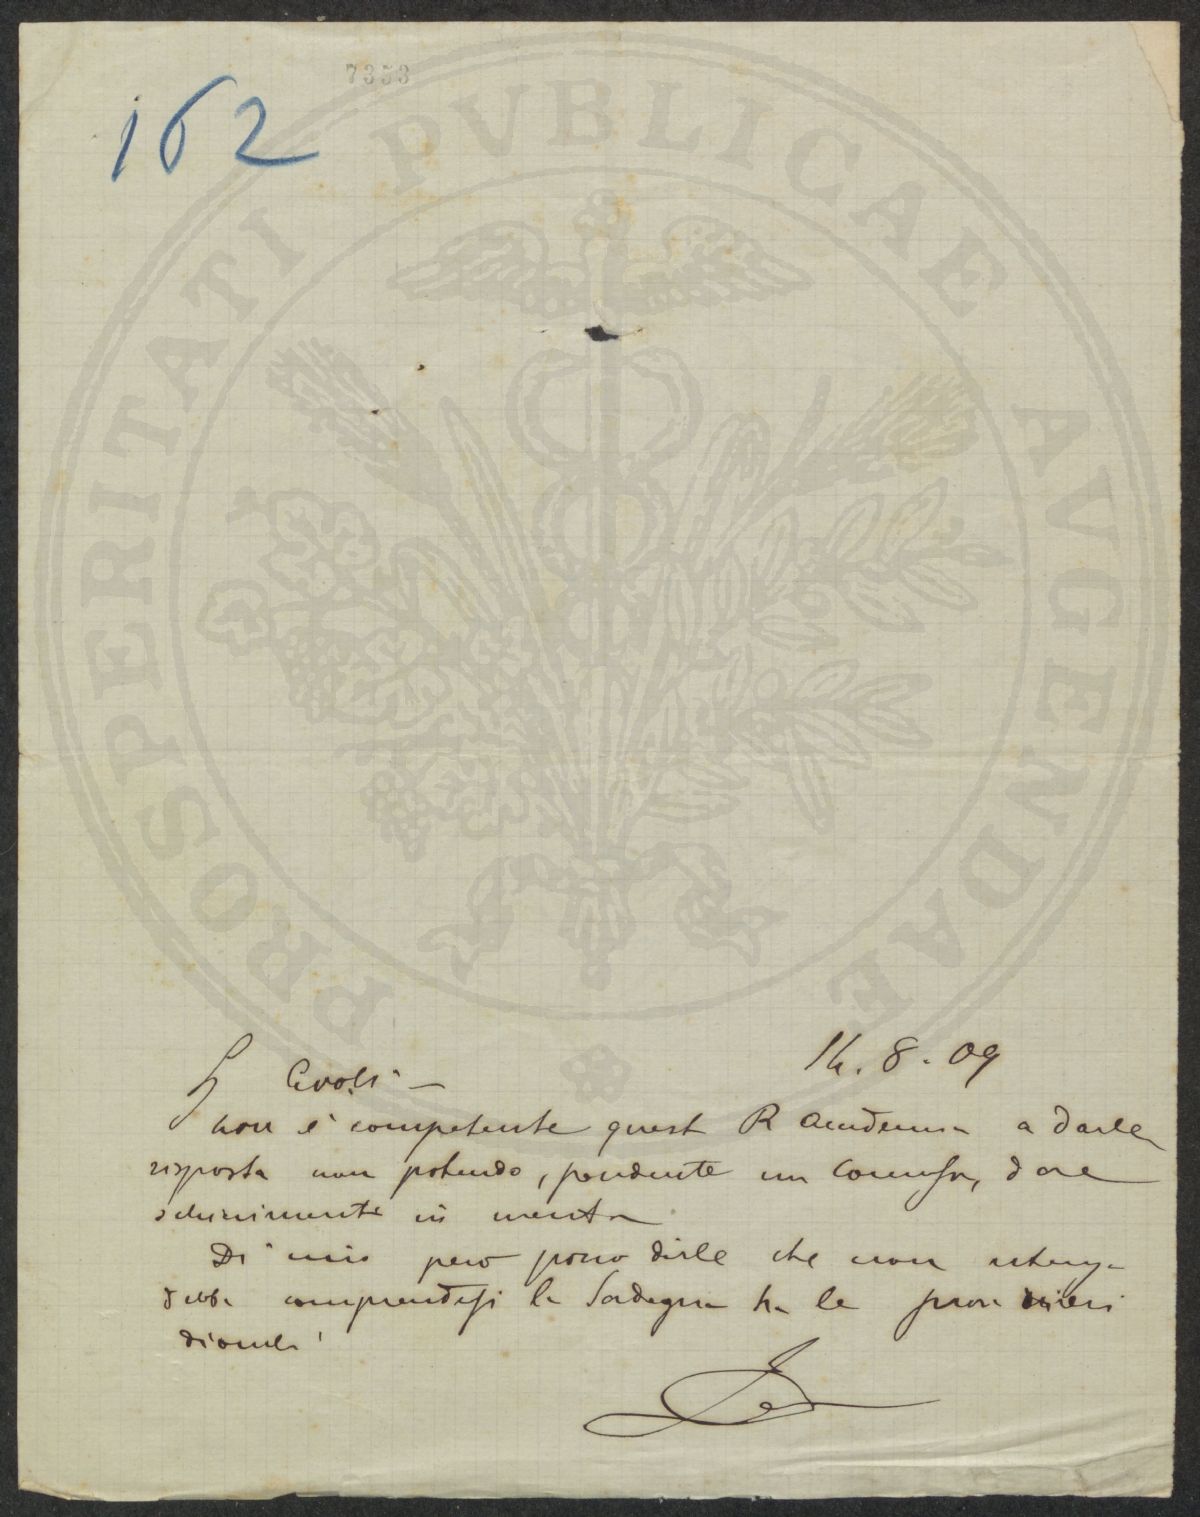 7353
162
PROSPERITATI PVBLICAE AVGENDAE
14.8.09
non è competente quest R Accademia a darle
risposta non potendo, pendente un Concorso, dare
schiarimenti in merito
Di mio però posso dirle che non ritengo
debba comprendersi la Sardegna tra le provincie